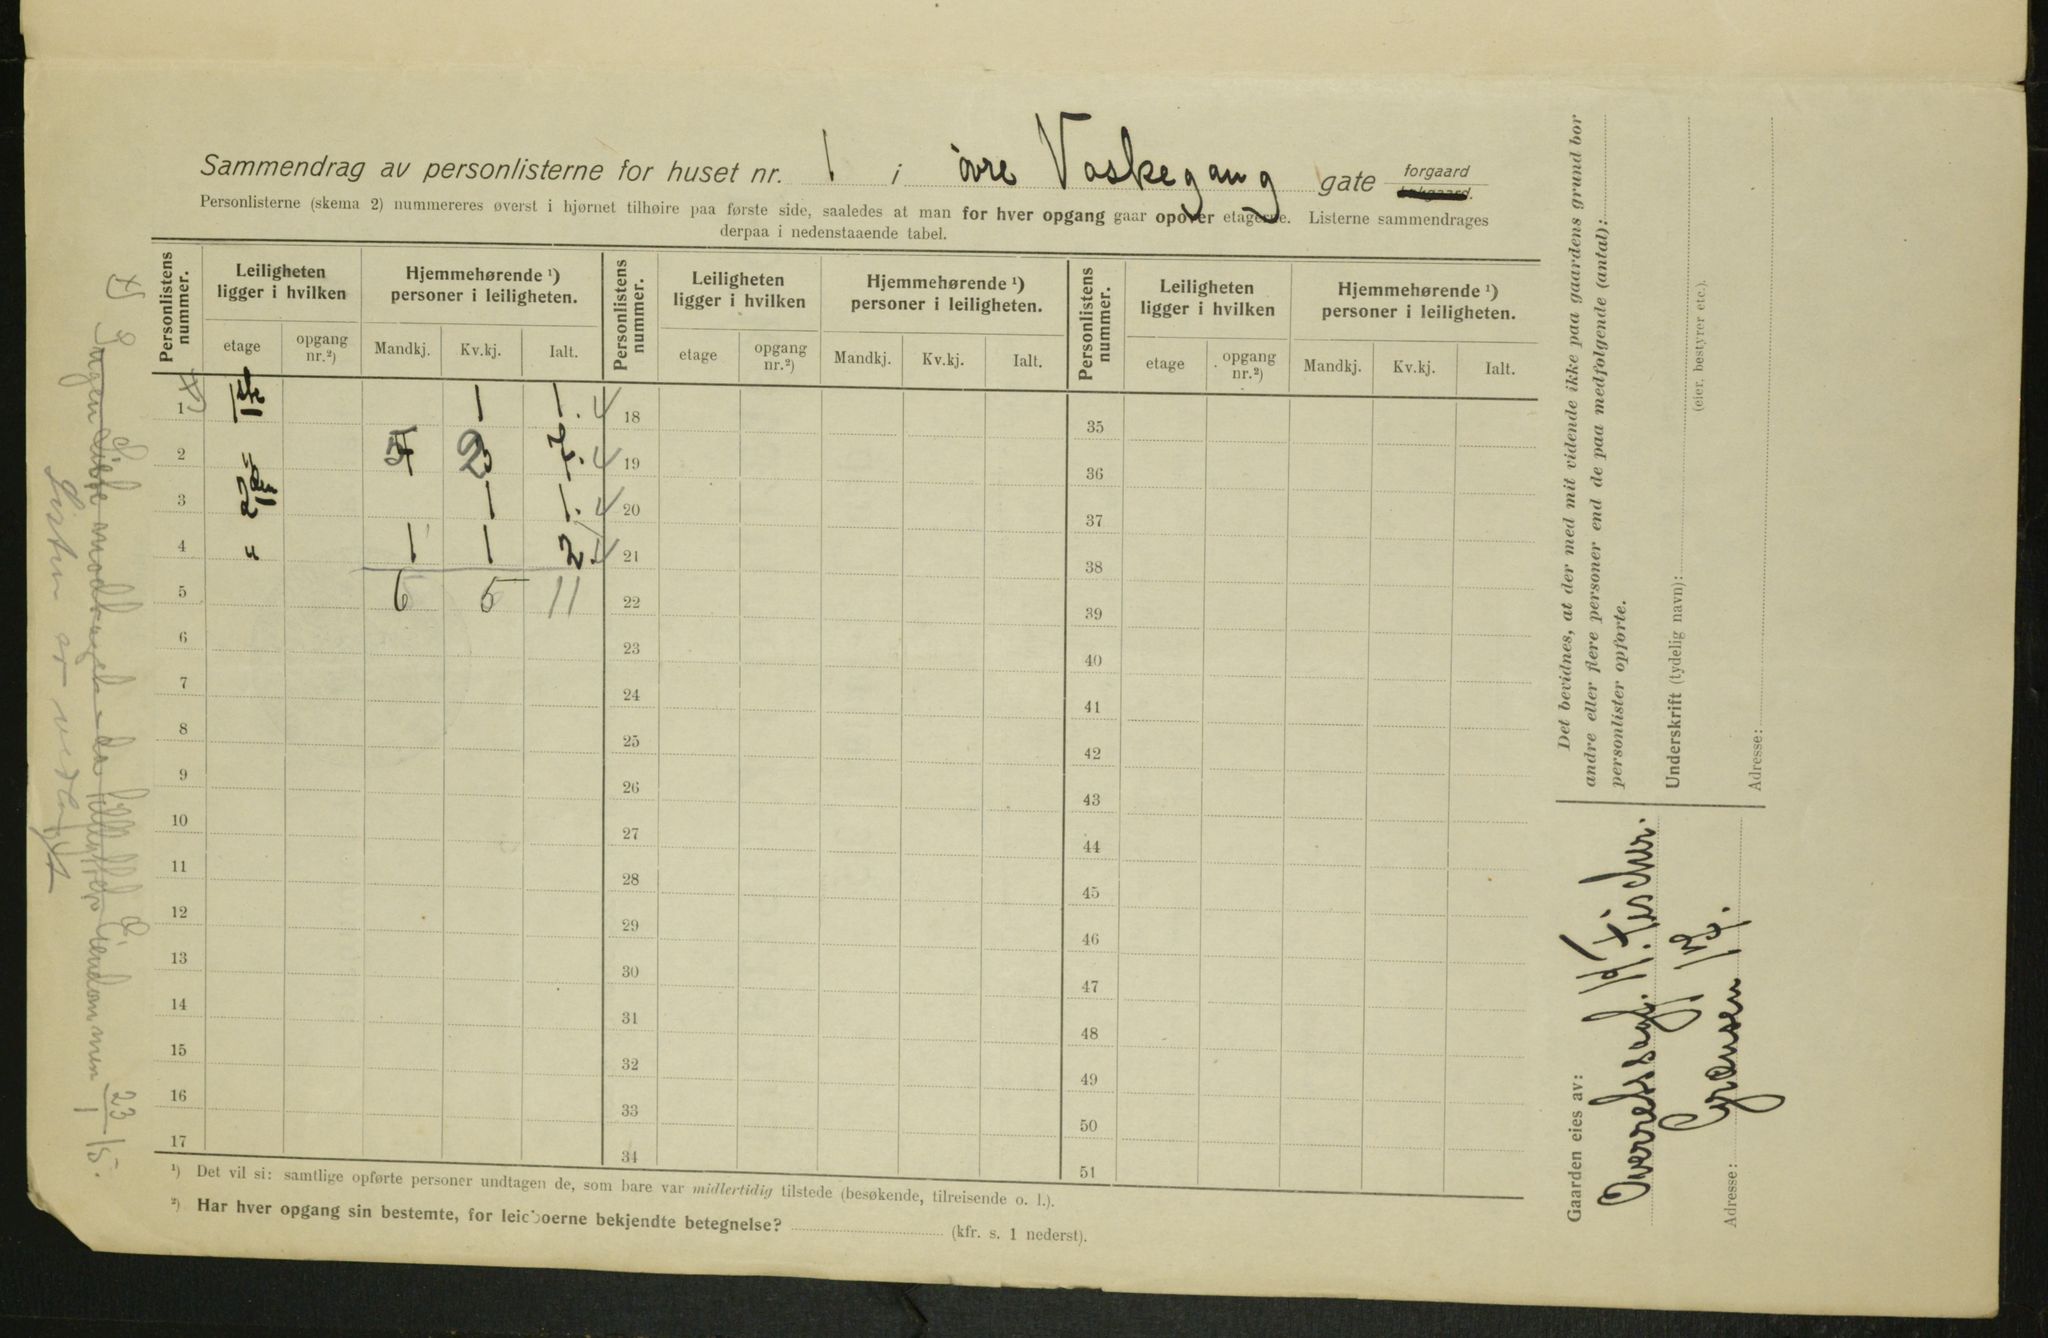 Sammendrag av personlisterne for huset nr. 1 i øvre Vaskegang gate forgaard
Personlisterne (skema 2) nummereres øverst i hjørnet tilhøire paa første side, saaledes at man for hver opgang gaar opover etagerne. Listerne sammendrages
derpaa i nedenstaaende tabel.
Personlistens nummer. Leiligheten ligger i hvilken Hjemmehørende ¹) personer i leiligheten. Personlistens nummer. Leiligheten ligger i hvilken Hjemmehørende ¹) personer i leiligheten. Personlistens nummer. Leiligheten ligger i hvilken Hjemmehørende ¹) personer i leiligheten.
etage opgang nr.²) Mandkj. Kv.kj. Ialt. etage opgang nr.²) Mandkj. Kv.kj. Ialt. etage opgang nr.²) Mandkj. Kv.kj. Ialt.
1 1 1. 18 35
2 5 2 7. 19 36
3 1 1. 20 37
4 " 1 1 2. 21 38
5 6 5 11 22 39
6 23 40
7 24 41
8 25 42
9 26 43
10 27 44
11 28 45
12 29 46
13 30 47
14 31 48
15 32 49
16 33 50
17 34 51
¹) Det vil si: samtlige opførte personer undtagen de, som bare var midlertidig tilstede (besøkende, tilreisende o. l.).
²) Har hver opgang sin bestemte, for leieboerne bekjendte betegnelse? (kfr. s. 1 nederst).
Det bevidnes, at der med mit vidende ikke paa gaardens grund bor
andre eller flere personer end de paa medfølgende (antal):
personlister opførte.
Underskrift (tydelig navn):
(eier, bestyrer etc.).
Adresse:
Gaarden eies av: Overretssagf. Fischer.
Adresse: Grænsen
x) Ingen liste modtaget da
eiendommen 23/1 15.
Listen er vedlagt